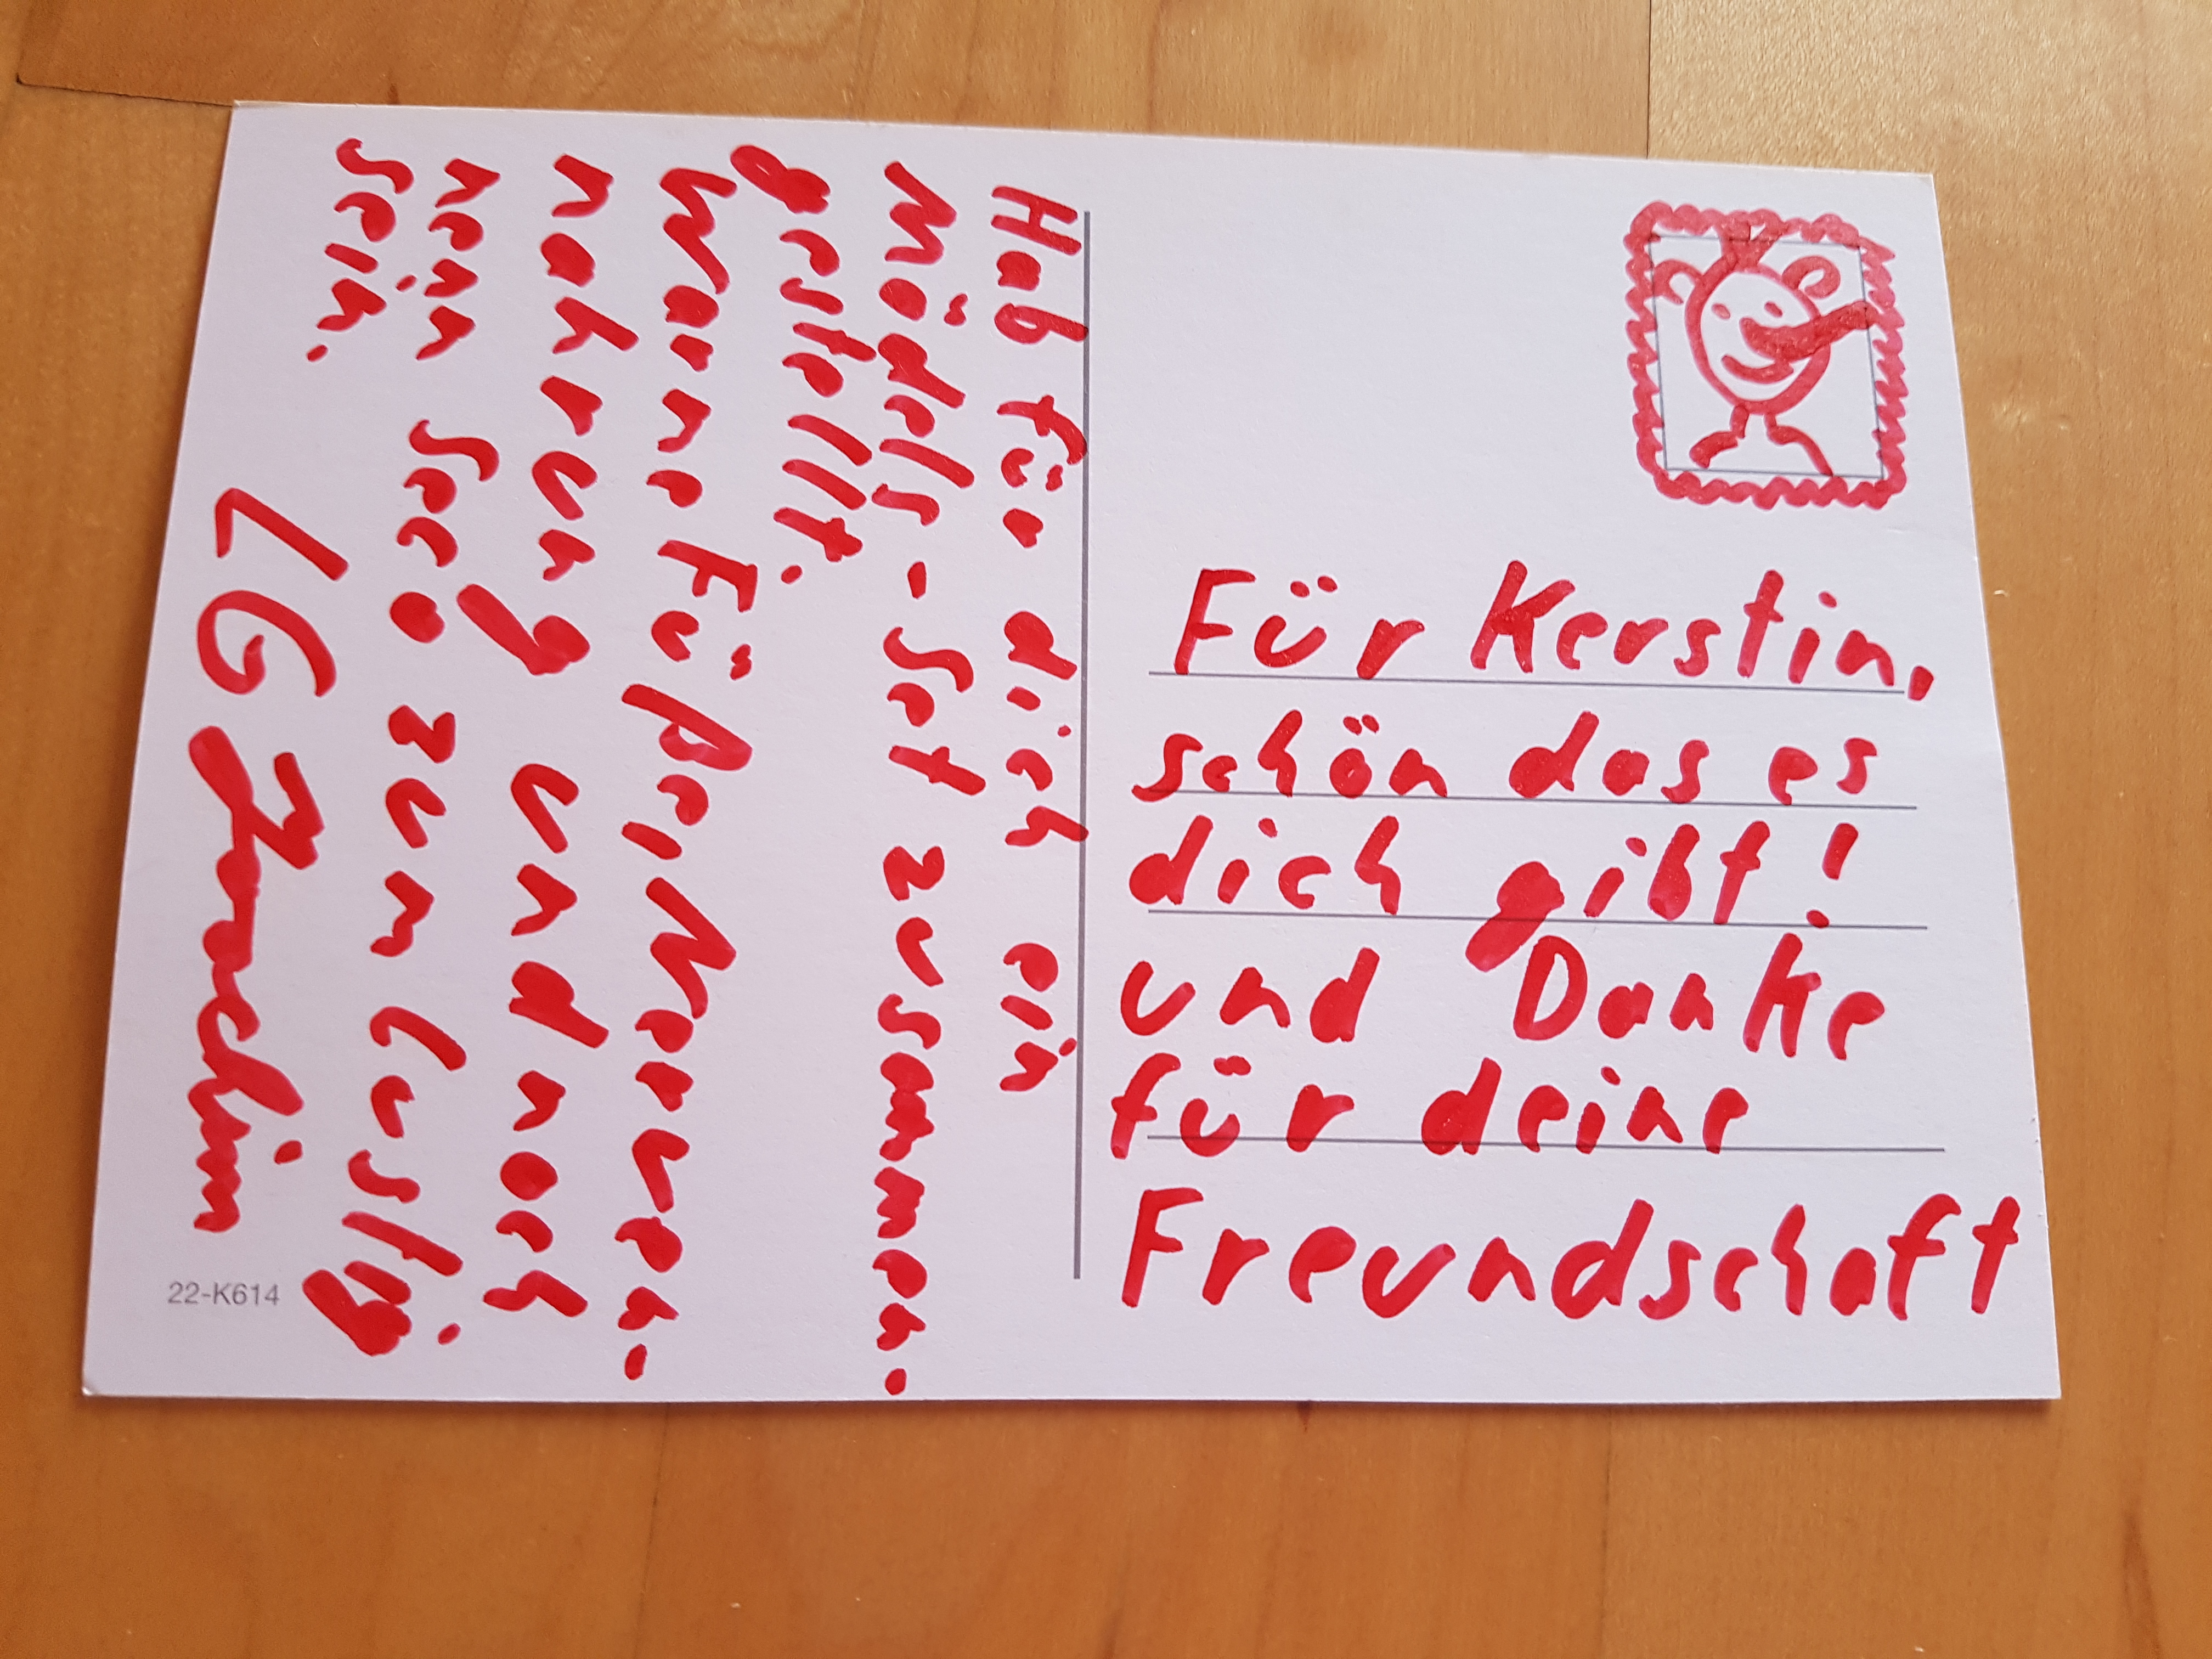 Für Kerstin,
schön das es
dich gibt!
und Danke
für deine
Freundschaft
Hab für dich ein
Mädels-Set zusammen-
gestellt.
Warme Füße, Nerven-
nahrung und noch
Seco zum lustig
sein.
LG Joachim
22-K614